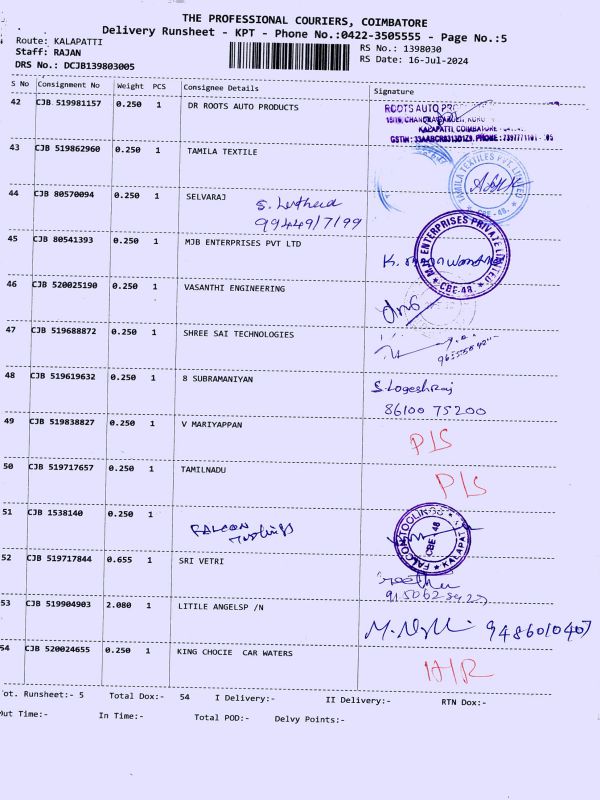 THE PROFESSIONAL COURIERS, COIMBATORE
Delivery Runsheet - KPT - Phone No.:0422-3505555 - Page No.:5
Route: KALAPATTI
RS No.: 1398030
Staff: RAJAN
RS Date: 16-Jul-2024
DRS No.: DCJB139803005
S No Consignment No Weight PCS Consignee Details Signature
42 CJB 519981157 0.250 1 DR ROOTS AUTO PRODUCTS
ROOTS AUTO
KALAPATTI, COIMBATORE
43 CJB 519862960 0.250 1 TAMILA TEXTILE
TAMILA TEXTILES PVT. LIMITED
CBE-48.
44 CJB 80570094 0.250 1 SELVARAJ
99449/7/99
45 CJB 80541393 0.250 1 MJB ENTERPRISES PVT LTD
MJB ENTERPRISES PRIVATE LIMITED
CBE-48.
46 CJB 520025190 0.250 1 VASANTHI ENGINEERING
47 CJB 519688872 0.250 1 SHREE SAI TECHNOLOGIES
48 CJB 519619632 0.250 1 8 SUBRAMANIYAN
S. Logeshraj
86100 75200
49 CJB 519838827 0.250 1 V MARIYAPPAN
P/S
50 CJB 519717657 0.250 1 TAMILNADU
P/S
51 CJB 1538140 0.250 1
FALCON
Toolings
FALCON TOOLINGS
CBE 48
KALAPATTI
52 CJB 519717844 0.655 1 SRI VETRI
53 CJB 519904903 2.080 1 LITILE ANGELSP /N
9486010407
54 CJB 520024655 0.250 1 KING CHOCIE CAR WATERS
Tot. Runsheet:- 5 Total Dox:- 54 I Delivery:- II Delivery:- RTN Dox:-
Out Time:- In Time:- Total POD:- Delvy Points:-